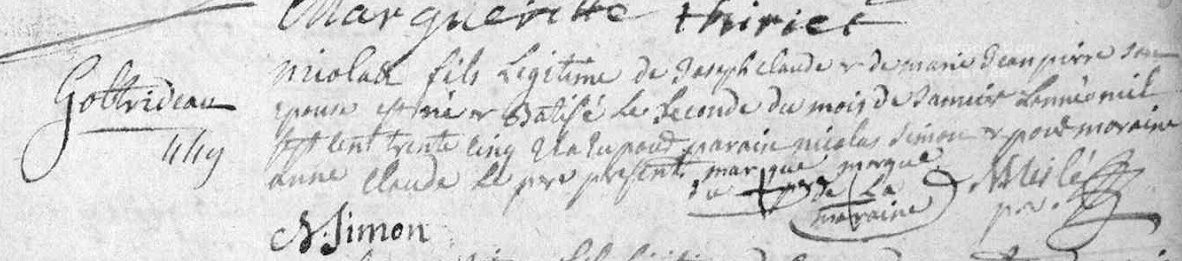 Margueritte thiriet
nicolas fils Legitime de Joseph Claude & de marie Jeanpierre son
epouse est né & Batisé Le Seconde du mois de Janvier Lannéé mil
sept cent trente cinq il a eu pour parain nicolas Simon & pour maraine
anne Claude Le pere present. marque marque
du + pere de La
maraine
N. Simon